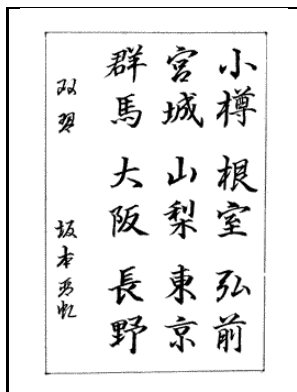 小樽 根室 弘前
宮城 山梨 東京
群馬 大阪 長野
坂本